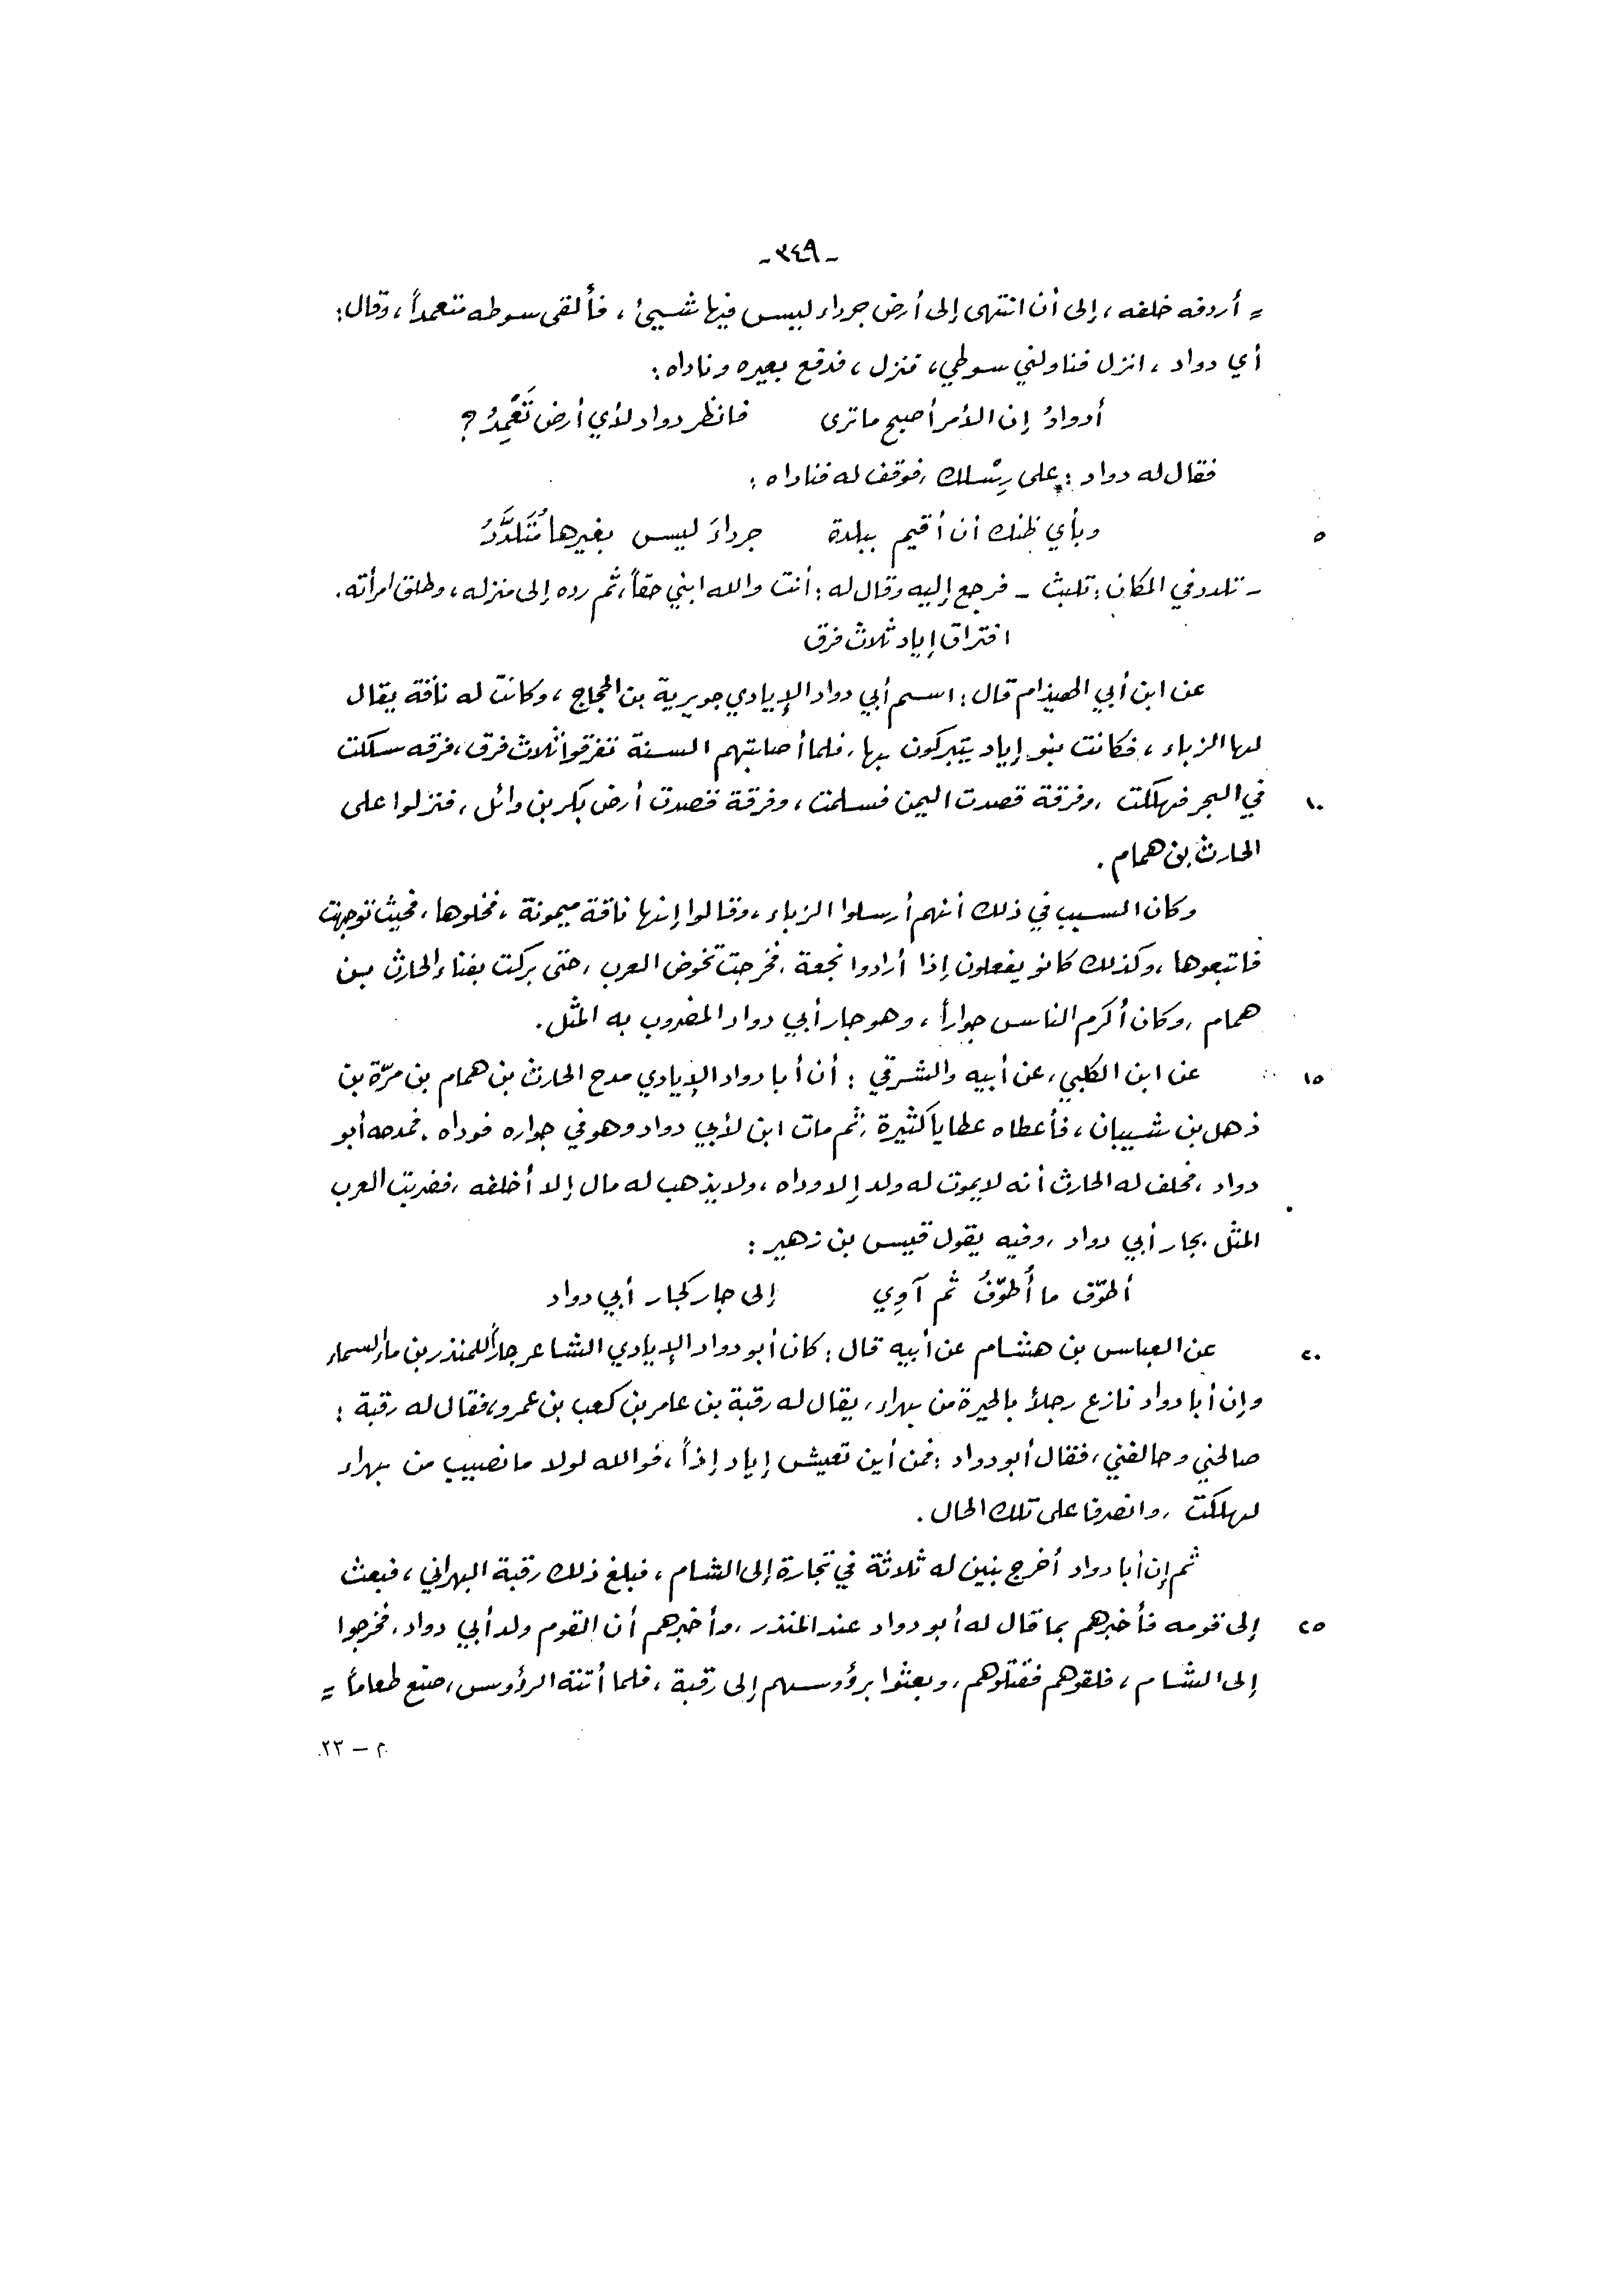 - ٣٤٩ -
= أردفه خلفه ، إلى أن انتهى إلى أرض جرداء ليس فيها شيئ ، فألقى سوطه متعمداً ، وقال :
أي دواد ، انزل فناولني سوطي ، فنزل ، فدفع بعيره وناداه :
أدوادُ إن الأمر أصبح ما ترى فانظر دواد لأي أرض تَعْمِدُ ؟
فقال له دواد : على رِسْلك ، فوقف له فناداه :
٥ وبأي ظنك أن أقيم ببلدة جرداءَ ليس بغيرها مُتَلَدَّدُ
- تلدد في المكان : تلبث - فرجع إليه وقال له : أنت والله ابني حقاً ، ثم رده إلى منزله ، وطلق امرأته .
افتراق إياد ثلاث فرق
عن ابن أبي الهيذام قال : اسم أبي دواد الإيادي جويرية بن الحجاج ، وكانت له ناقة يقال
لها الزباء ، فكانت بنو إياد يتبركون بها ، فلما أصابتهم السنة تفرقوا ثلاث فرق ، فرقه سلكت
١٠ في البحر فهلكت ، وفرقة قصدت اليمن فسلمت ، وفرقة قصدت أرض بكر بن وائل ، فنزلوا على
الحارث بن همام .
وكان السبب في ذلك أنهم أرسلوا الزباء ، وقالوا إنها ناقة ميمونة ، فخلوها ، فحيث توجهت
فاتبعوها ، وكذلك كانو يفعلون إذا أرادوا نجعة ، فخرجت تخوض العرب ، حتى بركت بفناء الحارث بن
همام ، وكان أكرم الناس جواراً ، وهو جار أبي دواد المضروب به المثل .
١٥ عن ابن الكلبي ، عن أبيه والشرقي : أن أبا دواد الإيادي مدح الحارث بن همام بن مرّة بن
ذهل بن شيبان ، فأعطاه عطايا كثيرة ، ثم مات ابن لأبي دواد وهو في جواره فوداه ، فمدحه أبو
دواد ، فحلف له الحارث أنه لايموت له ولد إلا وداه ، ولا يذهب له مال إلا أخلفه ، فضربت العرب
المثل بجار أبي دواد ، وفيه يقول قيس بن زهير :
أطوّف ما أُطوّفُ ثم آوِي إلى جار كجار أبي دواد
٢٠ عن العباس بن هشام عن أبيه قال : كان أبو دواد الإيادي الشاعر جاراً للمنذر بن ماء السماء
وإن أبا دواد نازع رجلاً بالحيرة من بهراء ، يقال له رقبة بن عامر بن كعب بن عمرو ، فقال له رقبة :
صالحني وحالفني ، فقال أبو دواد : فمن أين تعيش إياد إذاً ، فوالله لولا ما نصيب من بهراء
لهلكت ، وانصرفا على تلك الحال .
ثم إن أبا دواد أخرج بنين له ثلاثة في تجارة إلى الشام ، فبلغ ذلك رقبة البهراني ، فبعث
٢٥ إلى قومه فأخبرهم بما قال له أبو دواد عند المنذر ، وأخبرهم أن القوم ولد أبي دواد ، فخرجوا
إلى الشام ، فلقوهم فقتلوهم ، وبعثوا برؤوسهم إلى رقبة ، فلما أتته الرؤوس ، صنع طعاماً =
م - ٢٣